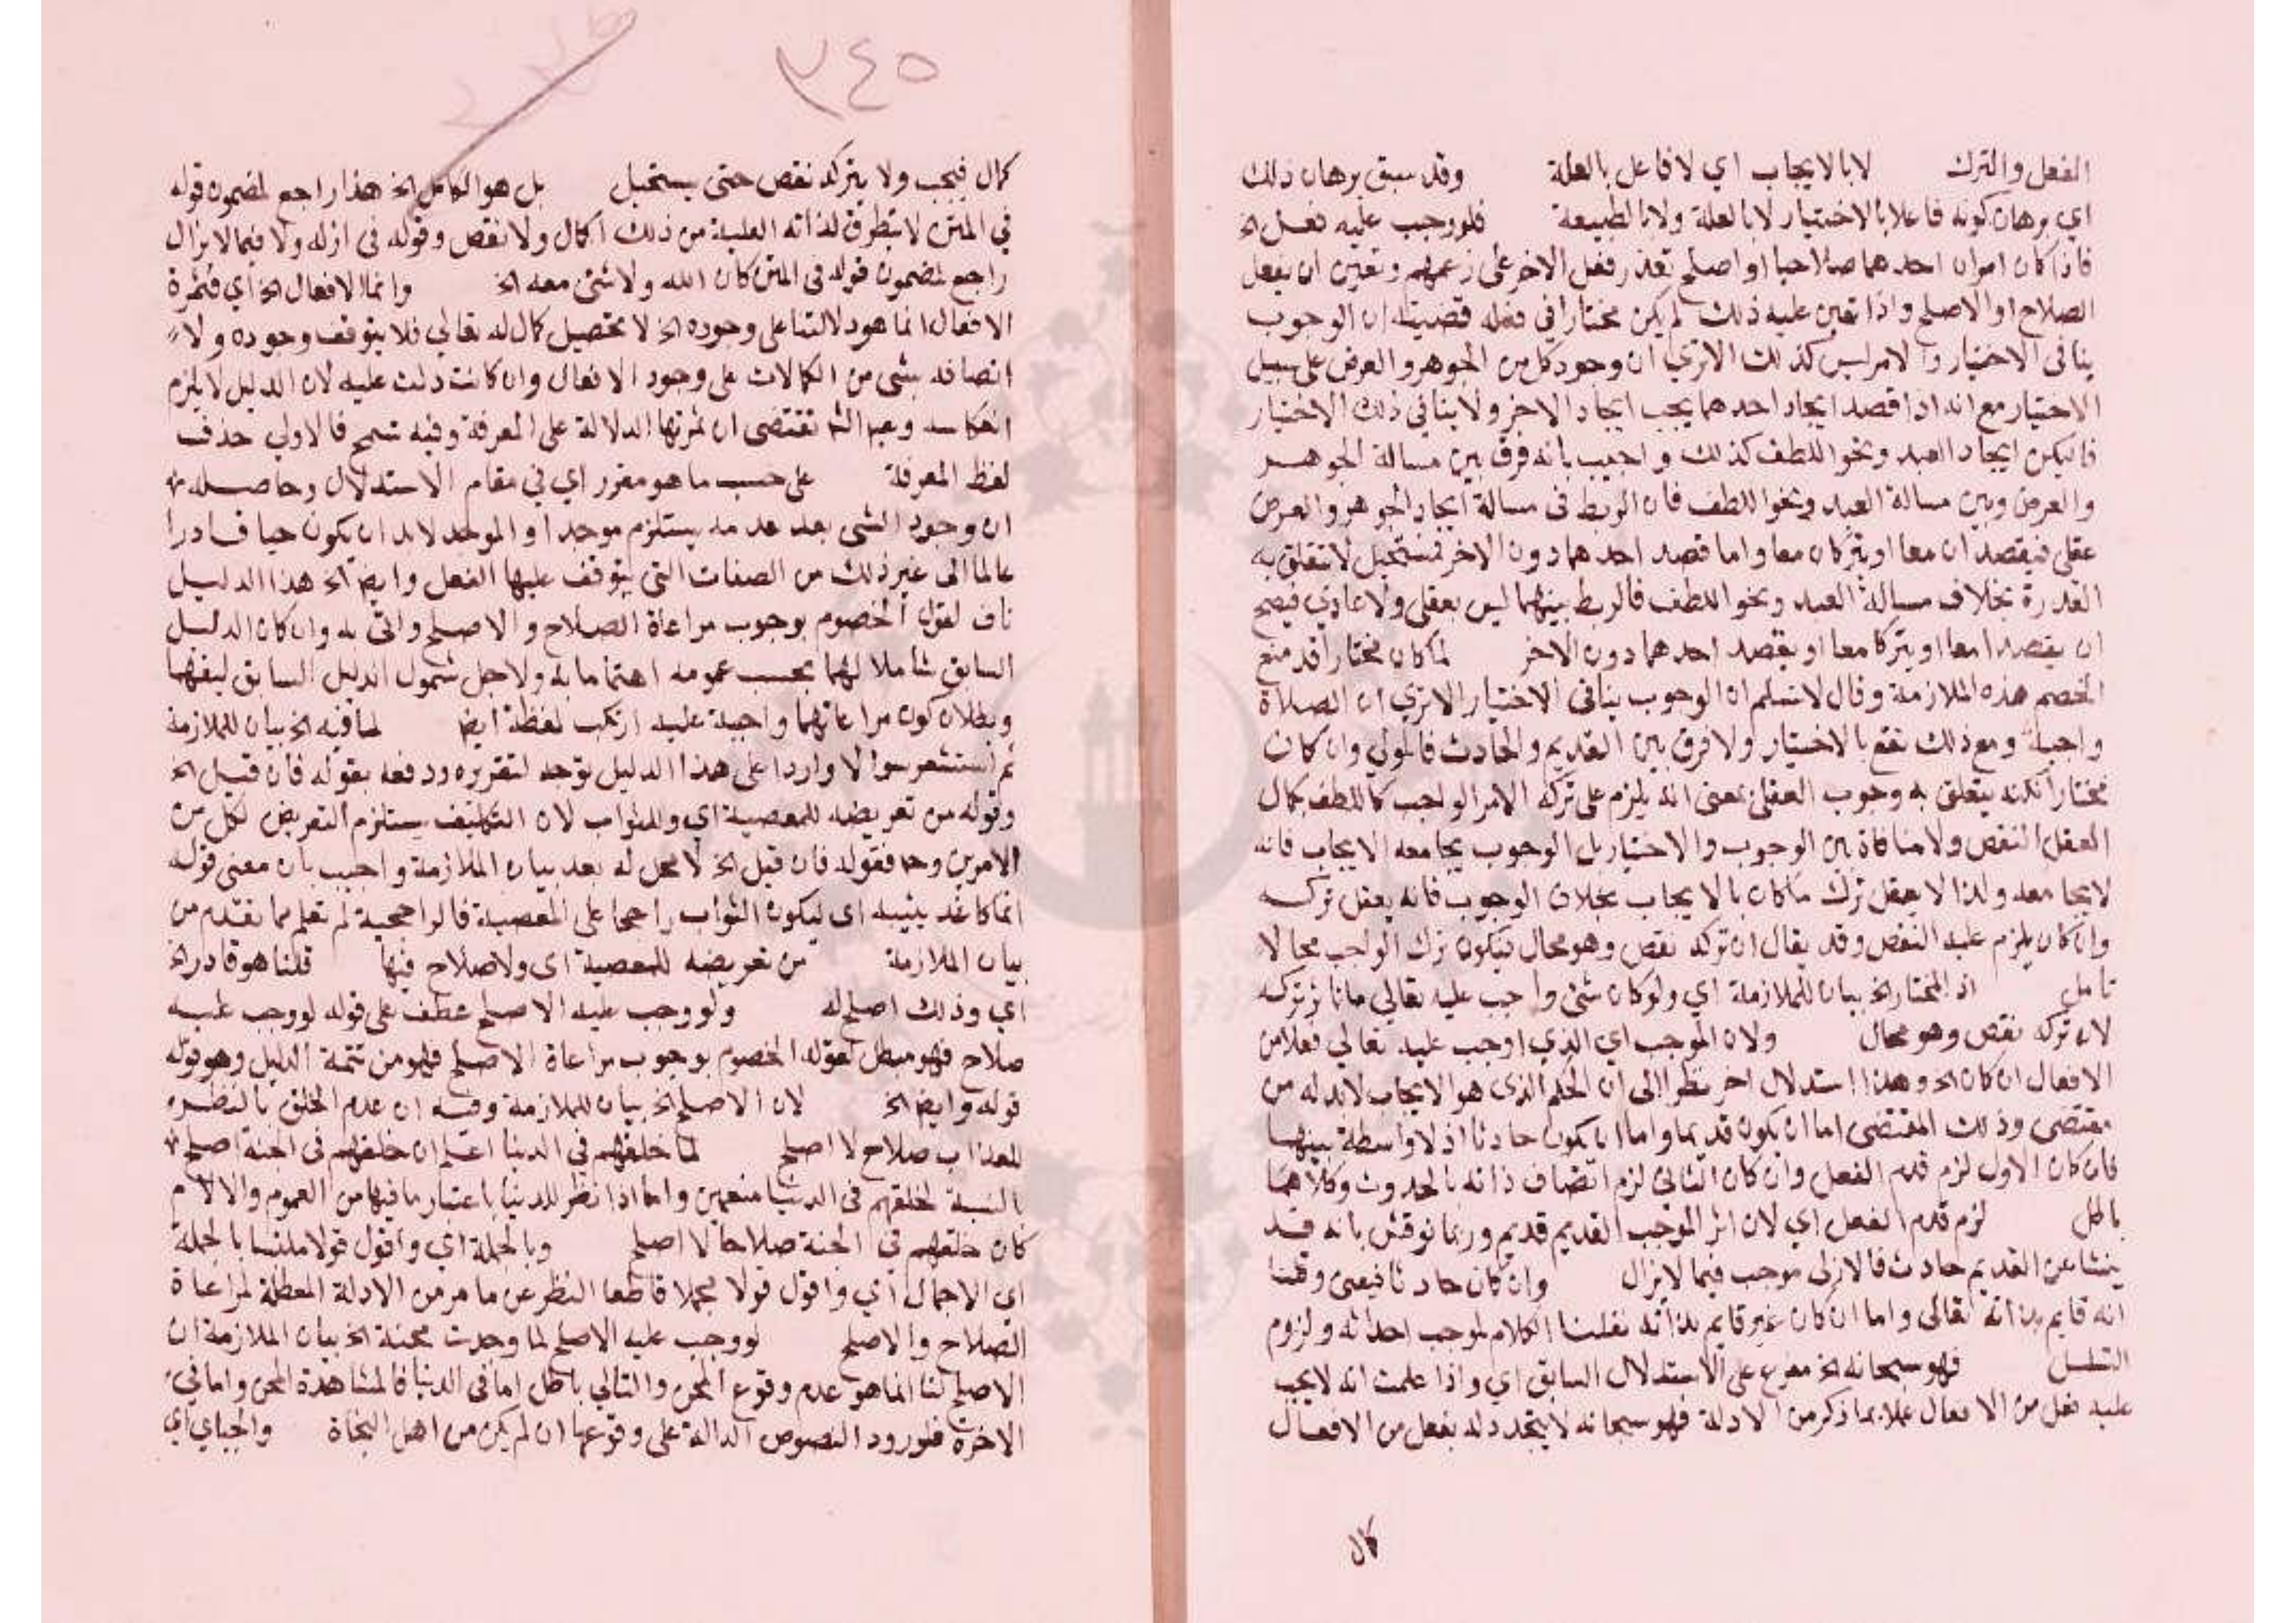 الفعل والترك لا بالايجاب اي لا فاعل بالعلة وقد سبق برهان ذلك
اي برهان كونه فاعلا بالاختيار لا بالعلة ولا بالطبيعة فلو وجب عليه فعل الخ
فاذا كان امران احدهما صلاحا او اصلح تعذر فعل الاخر على زعمهم وتعين ان يفعل
الصلاح او الاصلح واذا تعين عليه ذلك لم يكن مختارا في فعله قضيته ان الوجوب
ينافي الاختيار والامر ليس كذلك الا تري ان وجود كل من الجوهر والعرض على سبيل
الاختيار مع انه اذا قصد ايجاد احدهما يجب ايجاد الاخر ولا ينافي ذلك الاختيار
فليكن ايجاد العبد ونحو اللطف كذلك واجيب بانه فرق بين مسالة الجوهر
والعرض وبين مسالة العبد ونحو اللطف فان الربط في مسالة ايجاد الجوهر والعرض
عقلي فيقصد ان معا او يتركان معا واما قصد احدهما دون الاخر فمستحيل لا تتعلق به
القدرة بخلاف مسالة العبد ونحو اللطف فالربط بينهما ليس بعقلي ولا عادي فيصح
ان يقصدا معا او يتركا معا او يقصد احدهما دون الاخر لما كان مختارا قد منع
الخصم هذه الملازمة وقال لا نسلم ان الوجوب ينافي الاختيار الا تري ان الصلاة
واجبة ومع ذلك تقع بالاختيار ولا فرق بين القديم والحادث فالمولي وان كان
مختارا لكنه يتعلق به وجوب العقلى بمعنى انه يلزم على تركه الامر الواجب كاللطف بكمال
العقل النقص ولا منافاة بين الوجوب والاختيار بل الوجوب يجامعه الايجاب فانه
لا يجامعه ولذا لا يعقل ترك ما كان بالايجاب بخلاف الوجوب فانه يعقل تركه
وان كان يلزم عليه النقص وقد يقال ان تركه نقص وهو محال فيكون ترك الواجب محالا
تامل اذ المختار الخ بيان للملازمة اي ولو كان شئ واجب عليه تعالي ما تركه
لان تركه نقص وهو محال ولان الموجب اي الذي اوجب عليه تعالي فعلا من
الافعال ان كان الخ وهذا استدلال اخر نظرا الى ان الحكم الذى هو الايجاب لا بد له من
مقتضى وذلك المقتضى اما ان يكون قديما واما ان يكون حادثا اذ لا واسطة بينهما
فان كان الاول لزم قدم الفعل وان كان الثاني لزم اتصاف ذاته بالحدوث وكلاهما
باطل لزم قدم الفعل اي لان اثر الموجب القديم قديم وربما نوقش بانه قد
ينشا عن القديم حادث فالازلى موجب فيما لا يزال وان كان حادثا فيعنى وقلنا
انه قايم بذاته تعالى واما ان كان غير قايم بذاته نقلنا الكلام لموجب احداثه ولزوم
التسلسل فهو سبحانه الخ مفرع على الاستدلال السابق اي واذا علمت انه لا يجب
عليه فعل من الافعال عملا بما ذكر من الادلة فهو سبحانه لا يتجدد له بفعل من الافعال
كمال
٣٤٥
كمال فيجب ولا بتركه نقص حتى يستحيل بل هو الكامل الخ هذا راجع لمضمون قوله
في المتن لا يتطرق لذاته العلية من ذلك كمال ولا نقص وقوله في ازله ولا فيما لا يزال
راجع لمضمون قوله في المتن كان الله ولا شئ معه الخ وانما الافعال الخ أي فثمرة
الافعال انما هو دلالتنا على وجوده الخ لا تحصيل كمال له تعالي فلا يتوقف وجوده ولا
اتصافه بشي من الكمالات على وجود الافعال وان كانت دلت عليه لان الدليل لا يلزم
انعكاسه تقتضى ان ثمرتها الدلالة على المعرفة وفيه تسمح فالاولي حذف
لفظ المعرفة على حسب ما هو مقرر اي في مقام الاستدلال وحاصله
ان وجود الشى بعد عدمه يستلزم موجدا والموجد لا بد ان يكون حيا قادرا
عالما الى غير ذلك من الصفات التي يتوقف عليها الفعل وايض الخ هذا الدليل
ناف لقول الخصوم بوجوب مراعاة الصلاح والاصلح واتى به وان كان الدليل
السابق شاملا لهما بحسب عمومه اهتماما به ولاجل شمول الدليل السابق لنفيهما
وبطلان كون مراعاتهما واجبة عليه ارتكب لفظة ايض لما فيه الخ بيان للملازمة
ثم استشعر سوالا واردا على هذا الدليل توجه لتقريره ودفعه بقوله فان قيل الخ
وقوله من تعريضه للمعصية اي وللثواب لان التكليف يستلزم التعريض لكل من
الامرين وح فقوله فان قيل الخ لا محل له بعد بيان الملازمة واجيب بان معنى قوله
انما كلفه يثيبه اى ليكون الثواب راجحا على المعصية فالراجحية لم تعلم مما تقدم من
بيان الملازمة من تعريضه للمعصية اى ولا صلاح فيها قلنا هو قادر الخ
اي وذلك اصلح له ولو وجب عليه الاصلح عطف على قوله لو وجب عليه
صلاح فهو مبطل لقول الخصوم بوجوب مراعاة الاصلح فهو من تتمة الدليل وهو قوله
قوله وايض الخ لان الاصلح الخ بيان للملازمة وفيه ان عدم الخلق بالنظر
للعذاب صلاح لا اصلح لما خلقهم في الدنيا اعلم ان خلقهم في الجنة اصلح
بالنسبة لخلقهم في الدنيا منعمين واما اذا نظر للدنيا باعتبار ما فيها من الغموم والالام
كان خلقهم في الجنة صلاحا لا اصلح وبالجملة اي واقول قولا ملتبسا بالجملة
اي الاجمال أي واقول قولا مجملا قاطعا النظر عن ما مر من الادلة المبطلة لمراعاة
الصلاح والاصلح لو وجب عليه الاصلح لما وجدت محنة الخ بيان الملازمة ان
الاصلح لنا انما هو عدم وقوع المحن والتالي باطل اما في الدنيا فالمشاهدة المحن واما في
الاخرة فلورود النصوص الدالة على وقوعها ان لم يكن من اهل النجاة والجباي اي